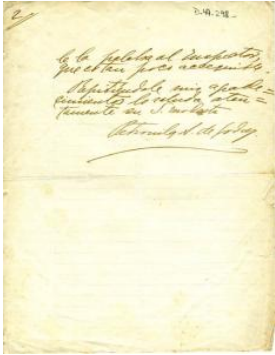 2/
D.49.298-
le la palabra al Inspector,
que es tan poco accequible
Repitiendole mis agrade=
cimientos lo saluda aten=
tamente su S.
Petronila A. de